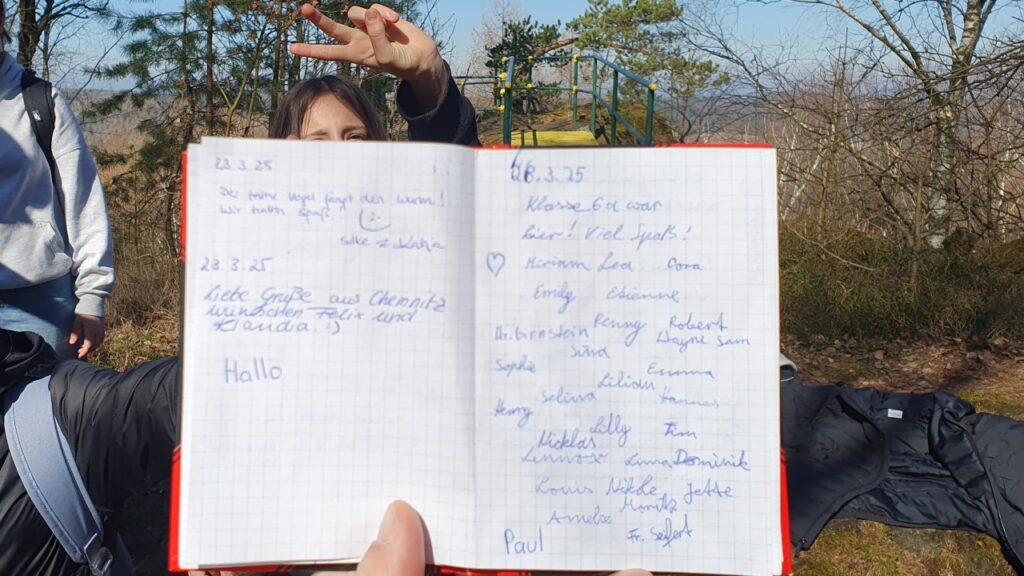 23.3.25
Der frühe Vogel fängt den Wurm!
Wir hatten Spaß
Silke & Katja
23.3.25
Liebe Grüße aus Chemnitz
wünschen Felix und
Klaudia :)
Hallo
8.3.25
Klasse 6d war
hier! Viel Spaß!
Miriam Lea Cora
Emily Etienne
Dr. Birnstein Penny Robert
Sina Wayne Sam
Sophie Emma
Selina Lilian Hannes
Henry Lilly Tim
Nicklas
Lennox Luna Dominik
Louis Nikole Jette
Amelie Moritz
Paul Fr. Seifert